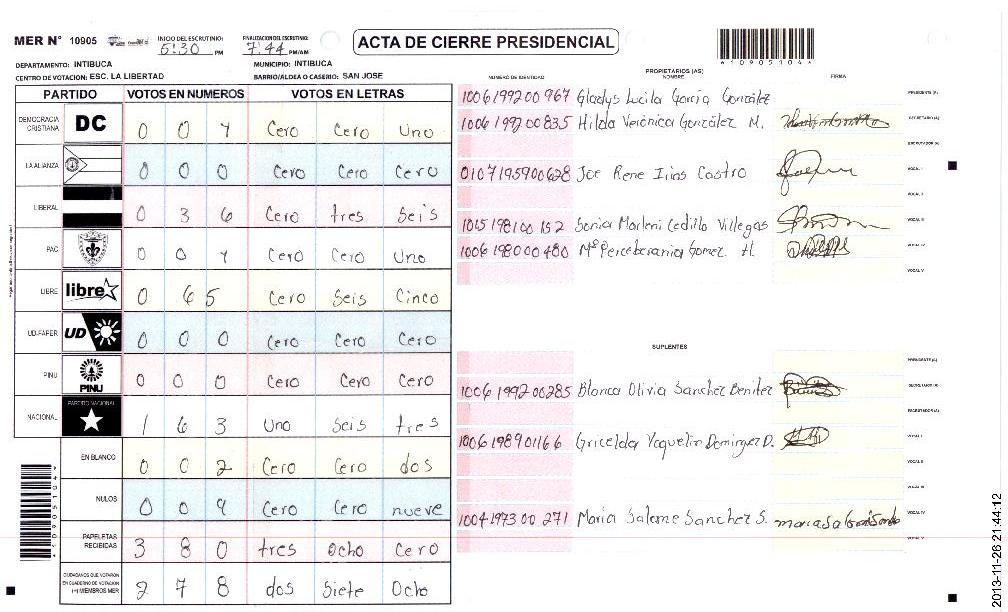 MER N° 10905
INICIO DEL ESCRUTINIO: 5:30 PM
FINALIZACION DEL ESCRUTINIO: 7:44 PM/AM
ACTA DE CIERRE PRESIDENCIAL
*10905104*
DEPARTAMENTO: INTIBUCA MUNICIPIO: INTIBUCA
CENTRO DE VOTACION: ESC. LA LIBERTAD BARRIO/ALDEA O CASERIO: SAN JOSE
PARTIDO VOTOS EN NUMEROS VOTOS EN LETRAS
DEMOCRACIA CRISTIANA DC 0 0 1 Cero Cero Uno
LA ALIANZA 0 0 0 Cero Cero Cero
LIBERAL 0 3 6 Cero tres Seis
PAC 0 0 1 Cero Cero Uno
LIBRE libre 0 6 5 Cero Seis Cinco
UD-FAPER UD 0 0 0 Cero Cero Cero
PINU PINU 0 0 0 Cero Cero Cero
NACIONAL PARTIDO NACIONAL 1 6 3 Uno Seis tres
EN BLANCO 0 0 2 Cero Cero dos
NULOS 0 0 9 Cero Cero nueve
PAPELETAS RECIBIDAS 3 8 0 tres Ocho Cero
CIUDADANOS QUE VOTARON EN CUADERNO DE VOTACION (+) MIEMBROS MER 2 7 8 dos Siete Ocho
*10905104*
PROPIETARIOS (AS)
NUMERO DE IDENTIDAD NOMBRE FIRMA
1006199200967 Gladys Lucila García González PRESIDENTE (A)
1006199200835 Hilda Verónica González M. SECRETARIO (A)
ESCRUTADOR (A)
0107195900628 Joe Rene Irias Castro VOCAL I
VOCAL II
1015198100152 Sonia Marleni Cedillo Villegas VOCAL III
1006198000480 Mª Perceberania Gomez H. VOCAL IV
VOCAL V
SUPLENTES
PRESIDENTE (A)
1006199200285 Blanca Olivia Sanchez Benitez SECRETARIO (A)
ESCRUTADOR (A)
1006198901166 Gricelda Yaquelin Dominguez D. VOCAL I
VOCAL II
VOCAL III
1004197300271 Maria Salome Sanchez S. VOCAL IV
VOCAL V
2013-11-26 21:44:12